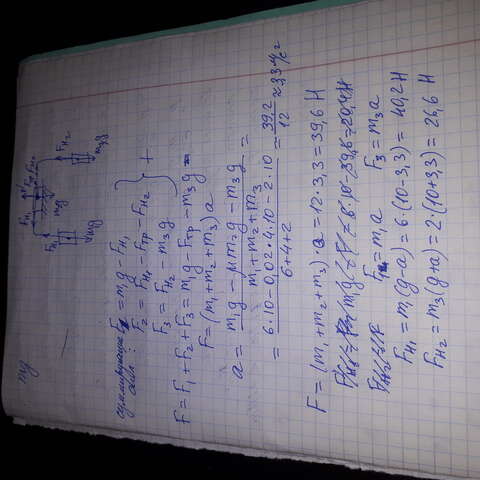 mg
F_H₁ N F_тр F_H₂
F_H₁ mg F_H₂
m₁g m₃g
суммирующие сил: F₁ = m₁g − F_H₁
F₂ = F_H₁ − F_тр − F_H₂ } +
F₃ = F_H₂ − m₃g
F = F₁ + F₂ + F₃ = m₁g − F_тр − m₃g
F = (m₁ + m₂ + m₃) a
a = (m₁g − μm₂g − m₃g) / (m₁ + m₂ + m₃) =
= (6·10 − 0,02·4·10 − 2·10) / (6+4+2) = 39,2/12 ≈ 3,3 м/с²
F = (m₁ + m₂ + m₃)·a = 12·3,3 = 39,6 Н
F₁ = m₁a F₃ = m₃a
F_H₁ = m₁(g−a) = 6·(10−3,3) = 40,2 Н
F_H₂ = m₃(g+a) = 2·(10+3,3) = 26,6 Н